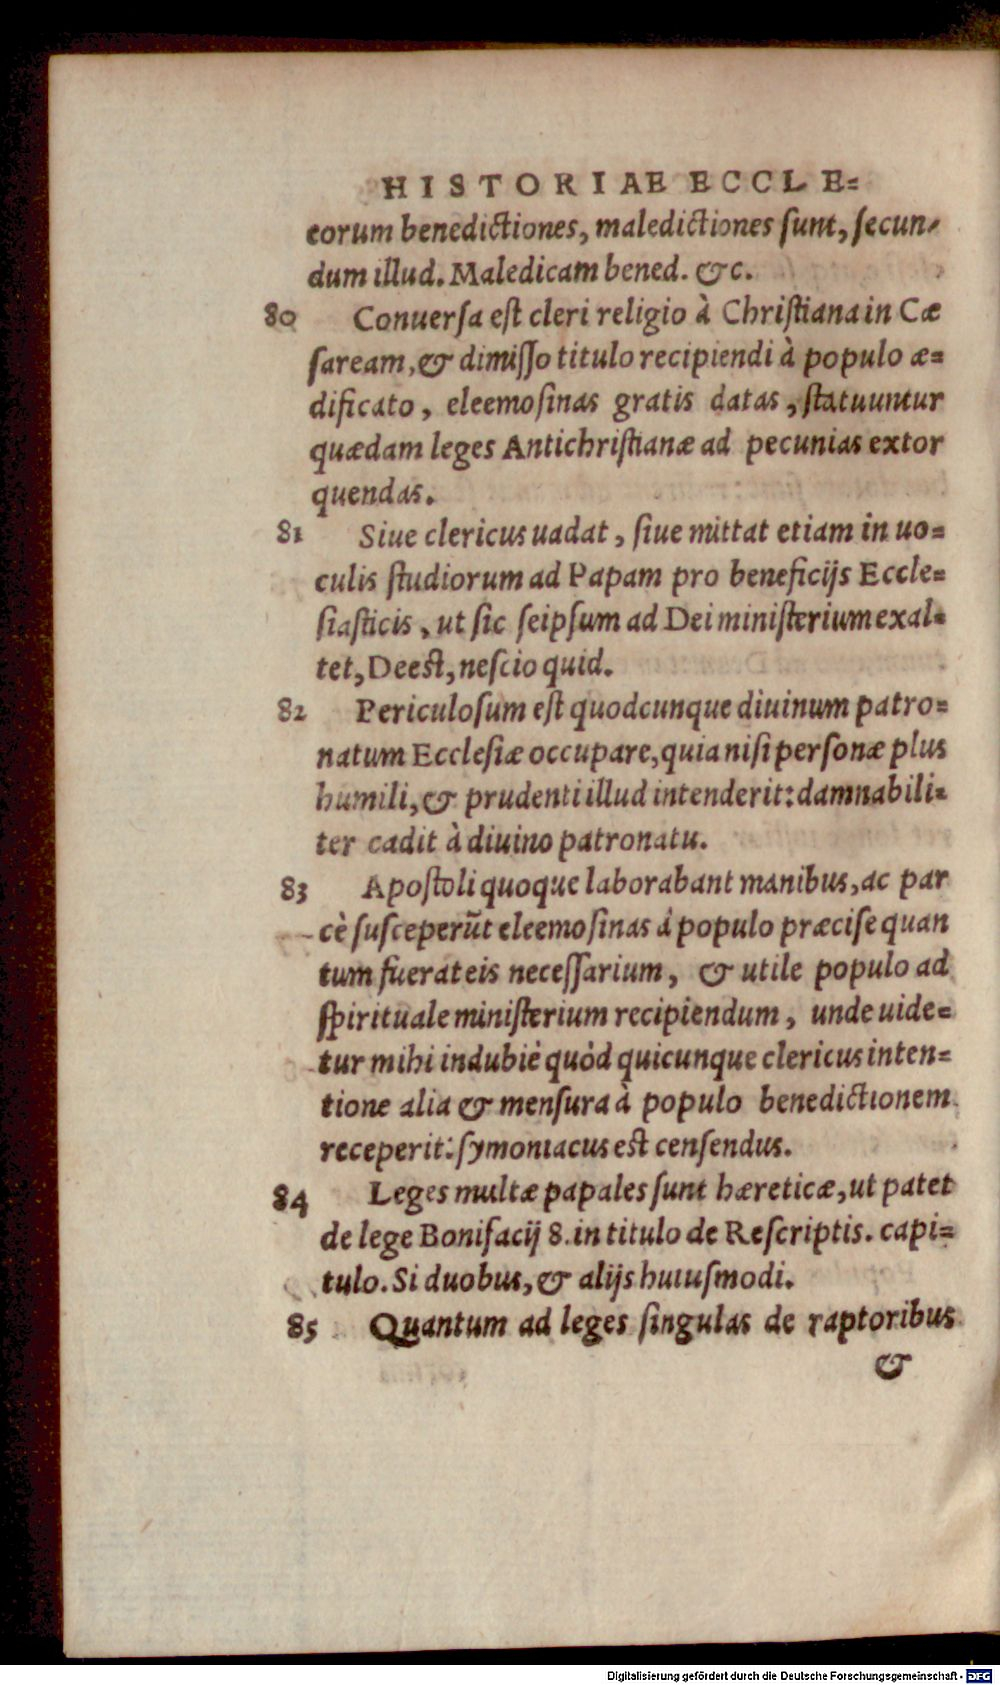 HISTORIAE ECCLE=
eorum benedictiones, maledictiones sunt, secun-
dum illud. Maledicam bened. &c.
80 Conuersa est cleri religio à Christiana in Cæ
saream, & dimisso titulo recipiendi à populo æ=
dificato, eleemosinas gratis datas, statuuntur
quædam leges Antichristianæ ad pecunias extor
quendas.
81 Siue clericus uadat, siue mittat etiam in uo=
culis studiorum ad Papam pro beneficijs Eccle=
siasticis, ut sic seipsum ad Dei ministerium exal=
tet, Deest, nescio quid.
82 Periculosum est quodcunque diuinum patro=
natum Ecclesiæ occupare, quia nisi personæ plus
humili, & prudenti illud intenderit: damnabili=
ter cadit à diuino patronatu.
83 Apostoli quoque laborabant manibus, ac par
cè susceperũt eleemosinas à populo præcise quan
tum fuerat eis necessarium, & utile populo ad
spirituale ministerium recipiendum, unde uide=
tur mihi indubiè quòd quicunque clericus inten=
tione alia & mensura à populo benedictionem
receperit: symoniacus est censendus.
84 Leges multæ papales sunt hæreticæ, ut patet
de lege Bonifacij 8. in titulo de Rescriptis. capi=
tulo. Si duobus, & alijs huiusmodi.
85 Quantum ad leges singulas de raptoribus
&
Digitalisierung gefördert durch die Deutsche Forschungsgemeinschaft - DFG